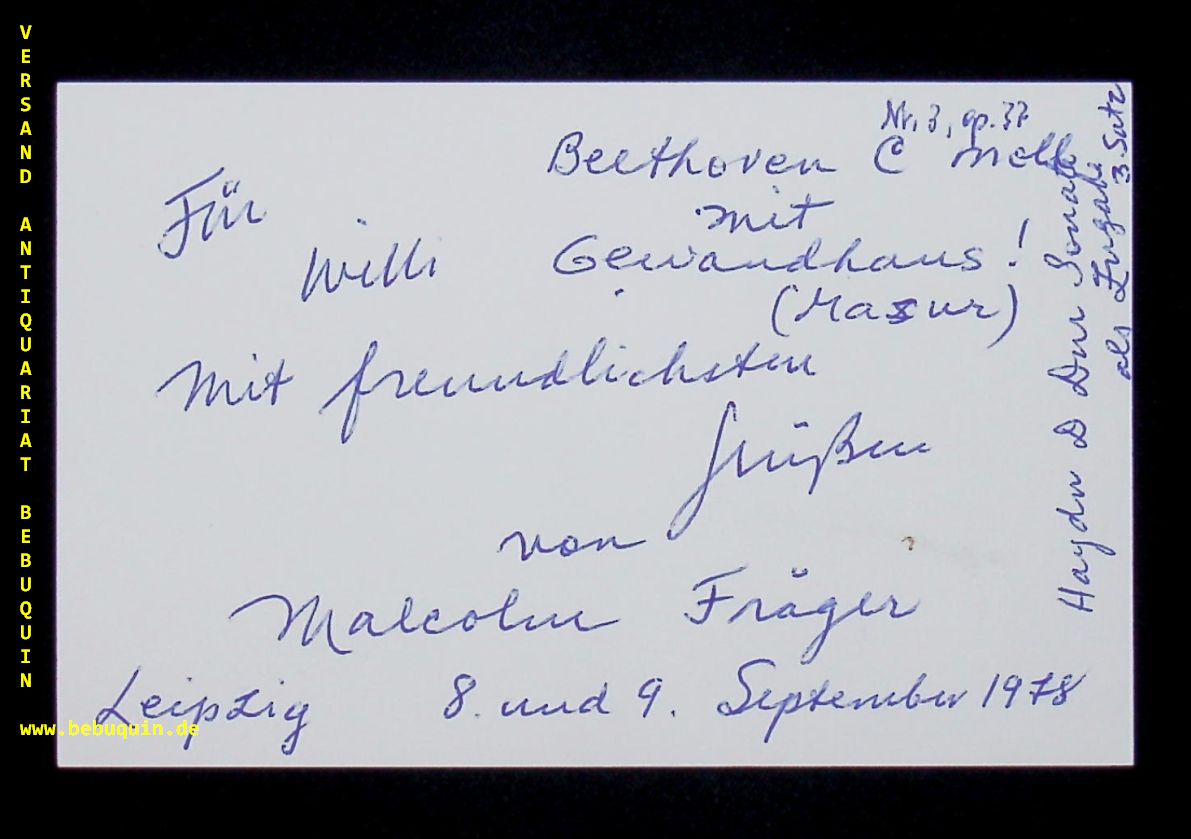 VERSAND ANTIQUARIAT BEBUQUIN
www.bebuquin.de
Nr. 3, op. 37
Beethoven C moll
mit
Gewandhaus!
(Masur)
Für
Willi
Mit freundlichsten
Grüßen
von
Malcolm Fräger
Leipzig 8. und 9. September 1978
Haydn D Dur Sonate
als Zugabe 3. Satz